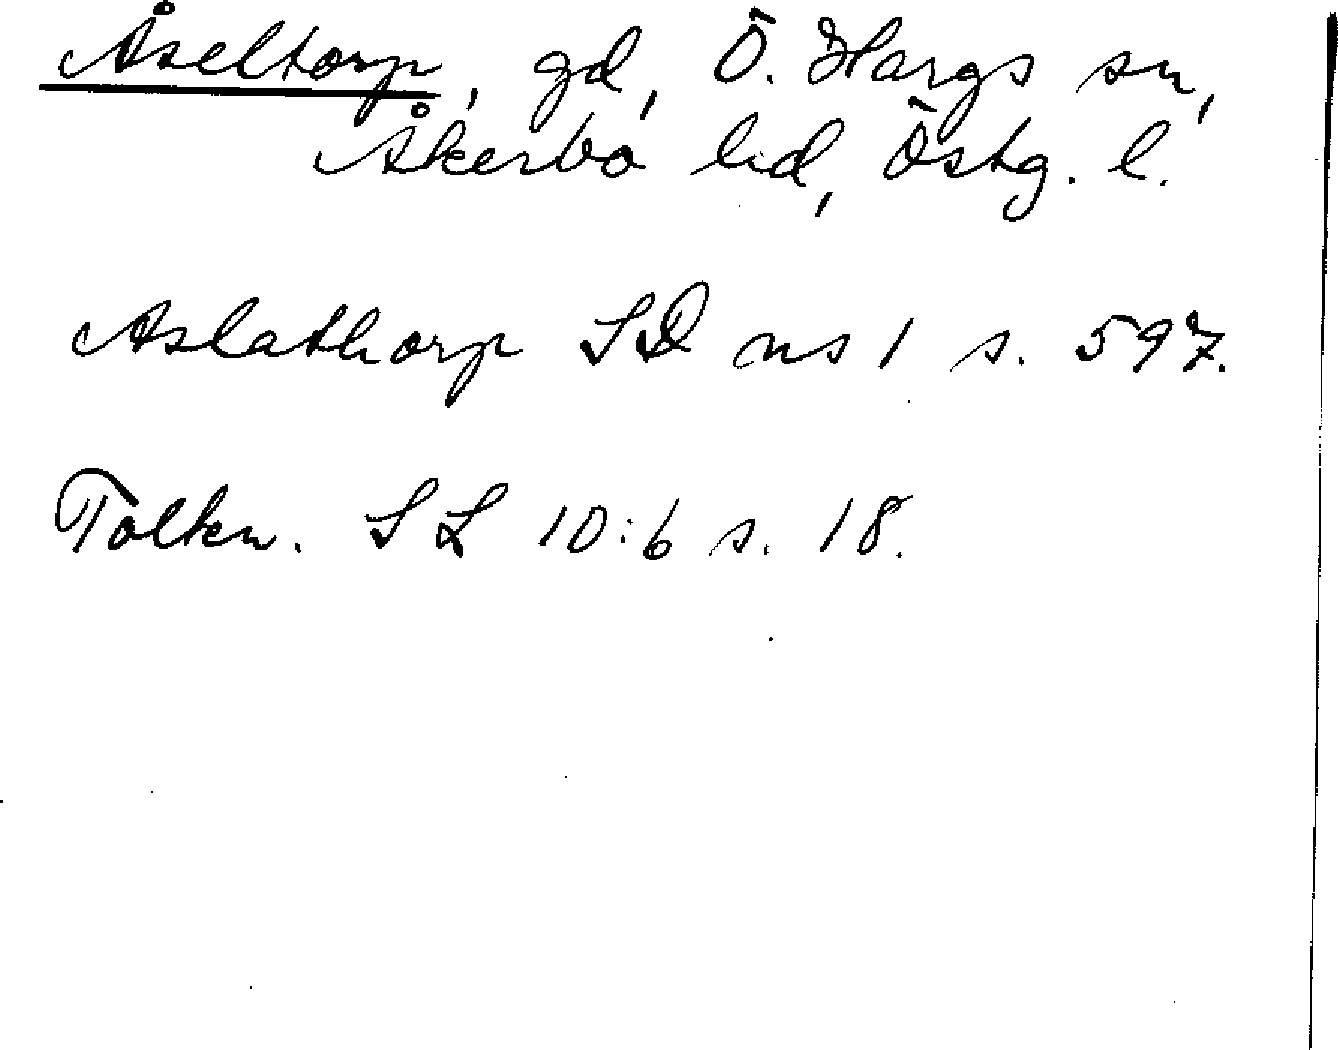 Åseltorp, gd, Ö. Hargs sn,
Åkerbo hd, Östg. l.
Aslathorp SD ns 1 s. 597.
Tolkn. SL 10:6 s. 18.